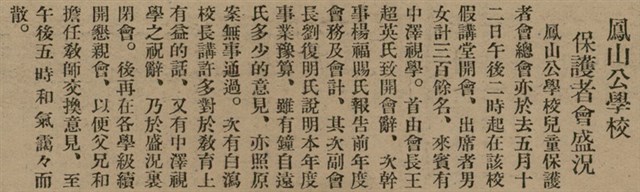 鳳山公學校
保護者會盛況
鳳山公學校兒童保護
者會總會亦於去五月十
二日午後二時起在該校
假講堂開會、出席者男
女計三百餘名、來賓有
中澤視學。首由會長王
超英氏致開會辭、次幹
事楊福賜氏報告前年度
會務及會計、其次副會
長劉復明氏說明本年度
事業豫算、雖有鐘自遠
氏多少的意見、亦照原
案無事通過。次有白瀉
校長講許多對於教育上
有益的話、又有中澤視
學之祝辭、乃於盛況裏
閉會。後再在各學級續
開懇親會、以便父兄和
擔任敎師交換意見、至
午後五時和氣靄々而
散。